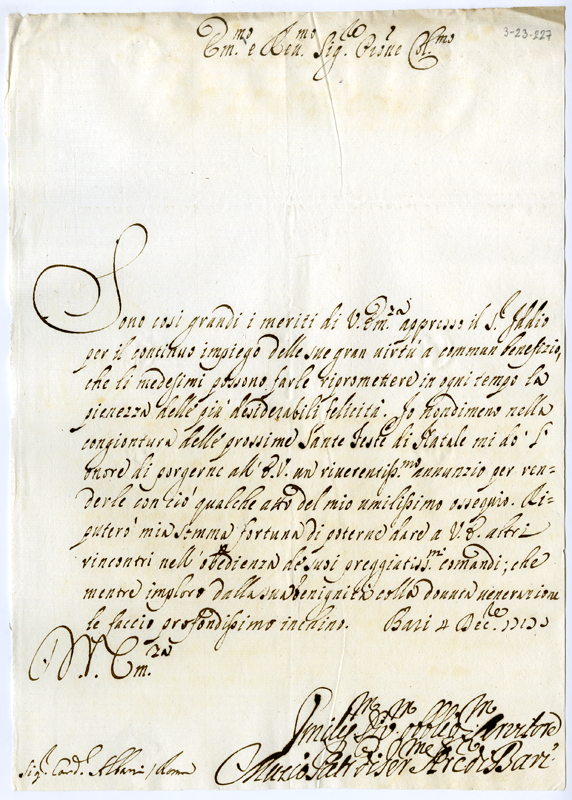 3-23-227
Em.mo e Rev.mo Sig.re P.rone Col.mo
Sono così grandi i meriti di V. Em.za appresso il S.r Iddio
per il continuo impiego delle sue gran virtù a commun benefizio,
che li medesimi possono farle ripromettere in ogni tempo la
pienezza delle più desiderabili felicità. Io nondimeno nella
congiontura delle prossime Sante Feste di Natale mi dò l'
onore di porgerne all'E.V. un riverentiss.mo annunzio per ren-
derle con ciò qualche atto del mio umilissimo ossequio. Ri-
puterò mia somma fortuna di poterne dare a V.E. altri
rincontri nell'obedienza de suoi preggiatiss.mi comandi; che
mentre imploro dalla sua benignità colla dovuta venerazione
le faccio profondissimo inchino. Bari 4 Dec.re
D. V. Em.za
Umiliss. Div. obblig. Servitore
Muzio Arc. di Bari
Sig.r Card.l Albani / Roma